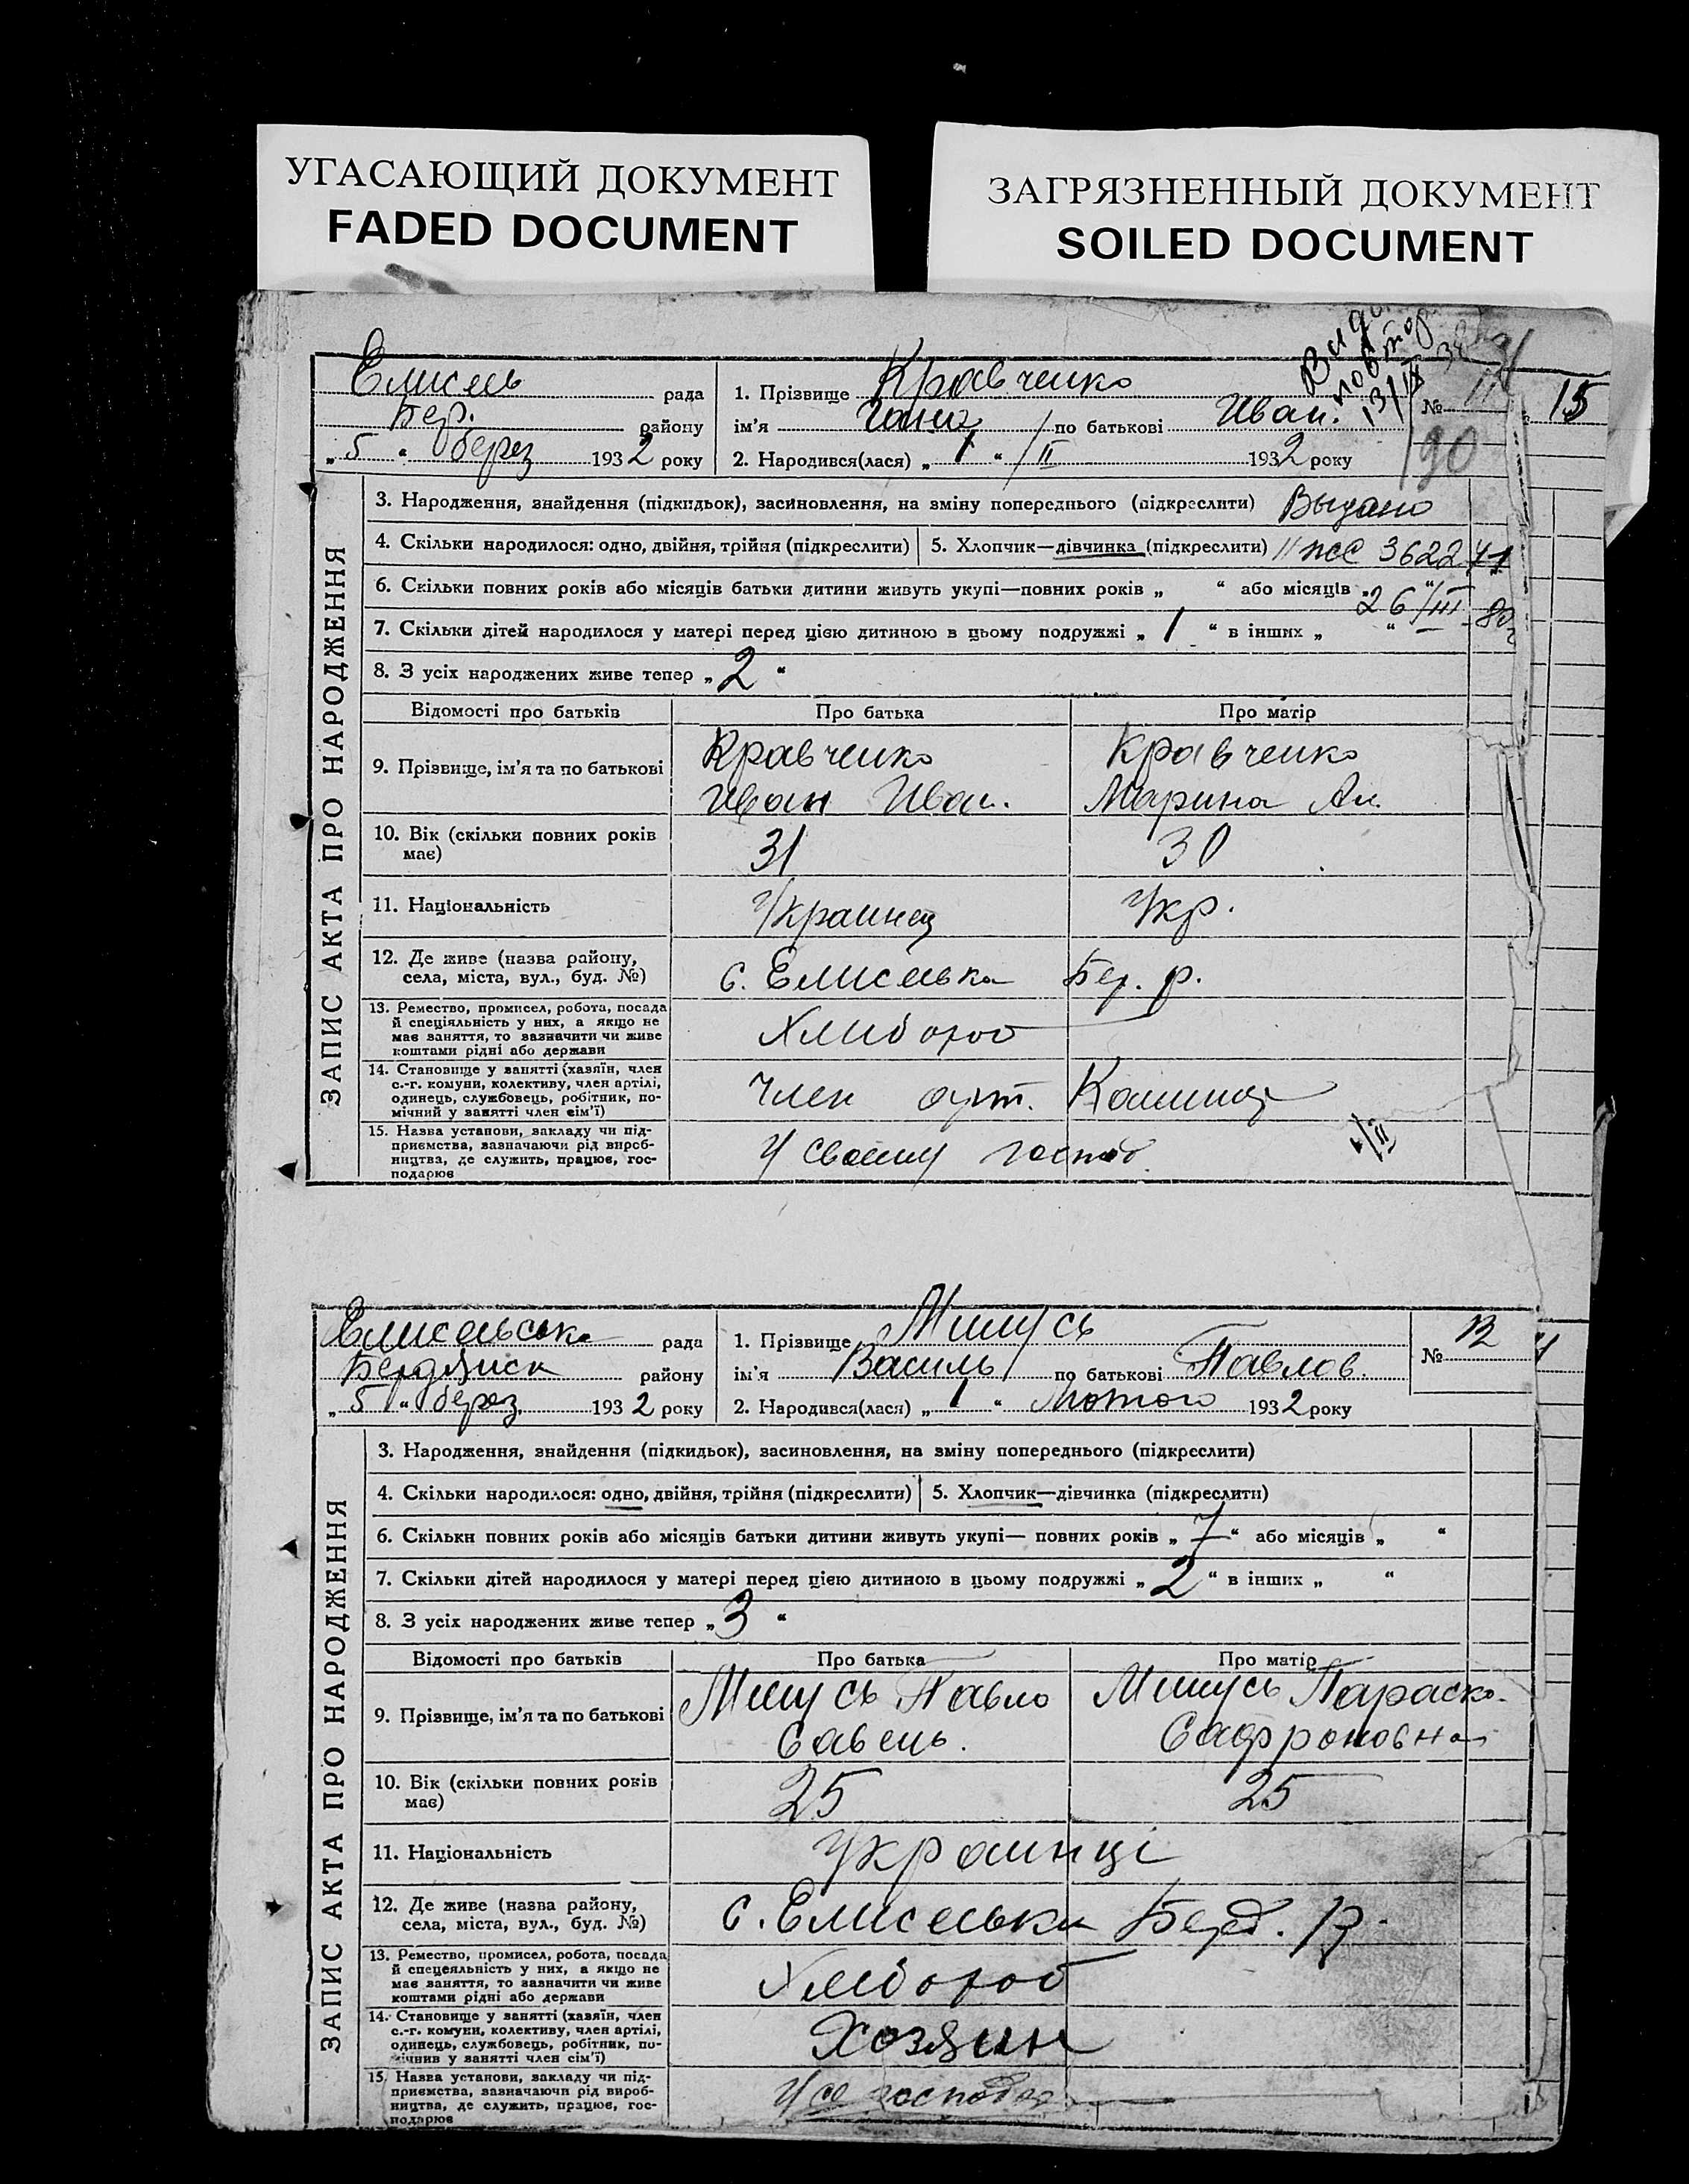 УГАСАЮЩИЙ ДОКУМЕНТ
FADED DOCUMENT
ЗАГРЯЗНЕННЫЙ ДОКУМЕНТ
SOILED DOCUMENT
Елисеь рада
Бер. району
„ 5 “ берез 1932 року
1. Прізвище Кравченко
ім'я Ганна по батькові Иван.
2. Народився(лася) „ 1 “ /II 1932 року
13/IX 38
№ 11
15
190
ЗАПИС АКТА ПРО НАРОДЖЕННЯ
3. Народження, знайдення (підкидьок), засиновлення, на зміну попереднього (підкреслити) Выдано
4. Скільки народилося: одно, двійня, трійня (підкреслити) 5. Хлопчик—дівчинка (підкреслити) II ЖС 3622
6. Скільки повних років або місяців батьки дитини живуть укупі—повних років „ “ або місяців „ “
26/III
7. Скільки дітей народилося у матері перед цією дитиною в цьому подружжі „ 1 “ в інших „ “
8. З усіх народжених живе тепер „ 2 “
Відомості про батьків Про батька Про матір
9. Прізвище, ім'я та по батькові Кравченко Иван Иван. Кравченко Марина Ан.
10. Вік (скільки повних років має) 31 30
11. Національність Украинец Укр.
12. Де живе (назва району, села, міста, вул., буд. №) с. Елисеьвка Бер. р.
13. Ремество, промисел, робота, посада й спеціяльність у них, а якщо не має заняття, то зазначити чи живе коштами рідні або держави Хлибороб
14. Становище у занятті (хазяїн, член с.-г. комуни, колективу, член артілі, одинець, службовець, робітник, помічний у занятті член сім'ї) член арт.
15. Назва установи, закладу чи підприємства, зазначаючи рід виробництва, де служить, працює, господарює У своему господ.
Елисеьвська рада
Бердянск району
„ 5 “ берез. 1932 року
1. Прізвище Мишусь
ім'я Василь по батькові Павлов.
2. Народився(лася) „ 1 “ Лютого 1932 року
№ 12
ЗАПИС АКТА ПРО НАРОДЖЕННЯ
3. Народження, знайдення (підкидьок), засиновлення, на зміну попереднього (підкреслити)
4. Скільки народилося: одно, двійня, трійня (підкреслити) 5. Хлопчик—дівчинка (підкреслити)
6. Скільки повних років або місяців батьки дитини живуть укупі— повних років „ 7 “ або місяців „ “
7. Скільки дітей народилося у матері перед цією дитиною в цьому подружжі „ 2 “ в інших „ “
8. З усіх народжених живе тепер „ 3 “
Відомості про батьків Про батька Про матір
9. Прізвище, ім'я та по батькові Мишусь Павло Савель. Мишусь Параско. Сафроновна
10. Вік (скільки повних років має) 25 25
11. Національність Украинці
12. Де живе (назва району, села, міста, вул., буд. №) с. Елисеьвка Берд. р.
13. Ремество, промисел, робота, посада й спецеяльність у них, а якщо не має заняття, то зазначити чи живе коштами рідні або держави Хлібороб
14. Становище у занятті (хазяїн, член с.-г. комуни, колективу, член артілі, одинець, службовець, робітник, помічнив у занятті член сім'ї) Хозяин
15. Назва установи, закладу чи підприємства, зазначаючи рід виробництва, де служить, працює, господарює